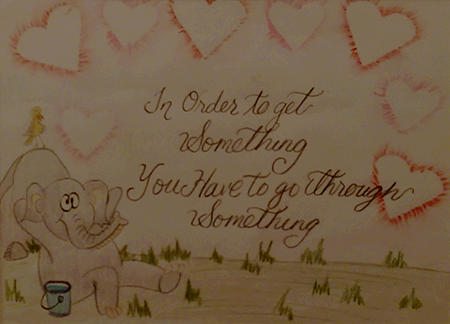 In Order to get
Something
You Have to go through
Something